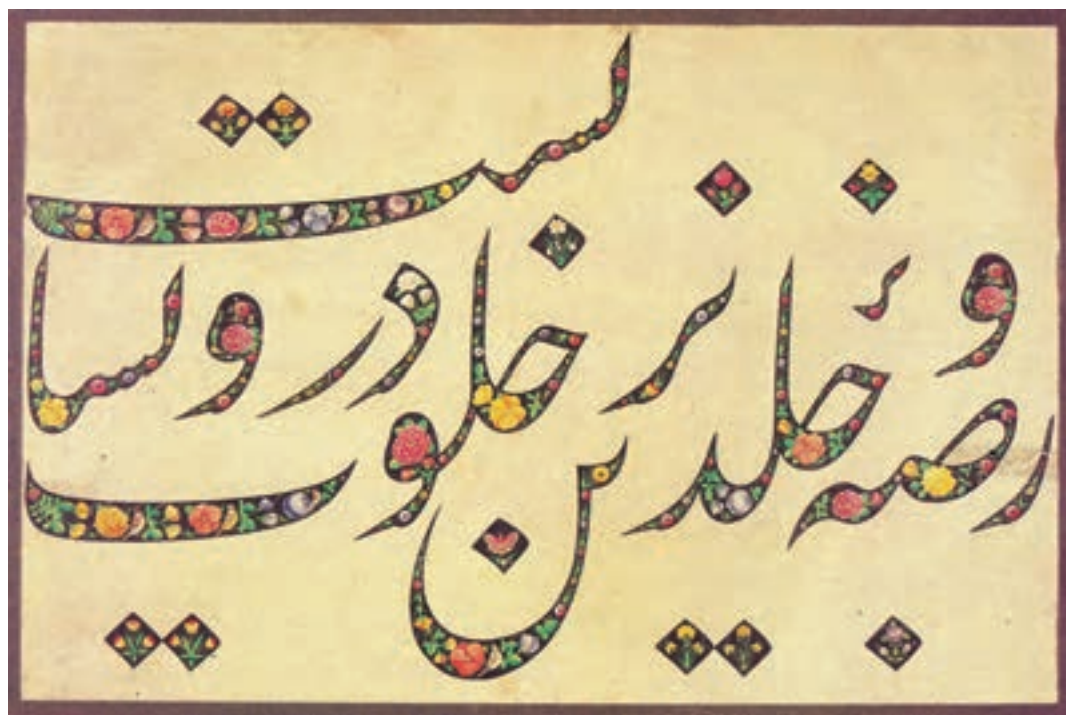 روضهٔ خلد برین خلوت درویشانست